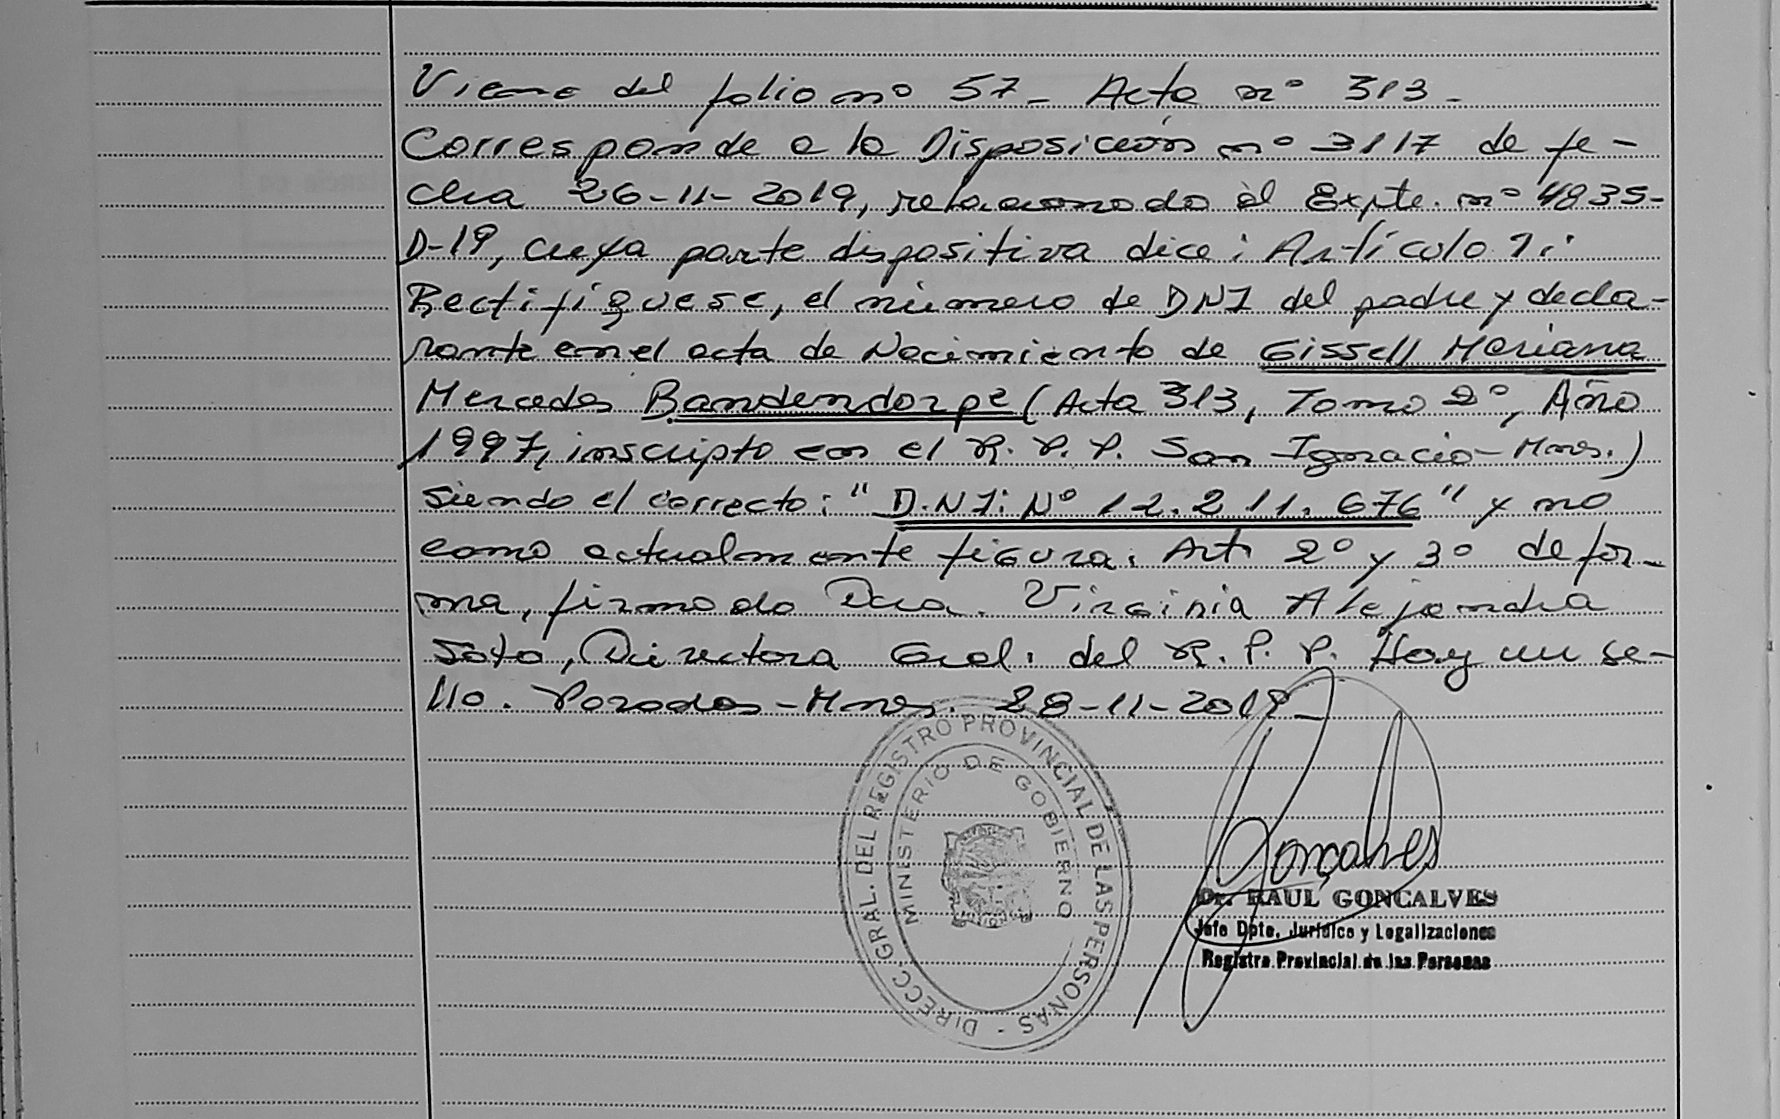 Viene del folio nº 57_ Acta nº 313_
Corresponde a la Disposición nº 3117 de fe-
cha 26-11-2019, relacionado al Expte. nº 4835-
D-19, cuya parte dispositiva dice: Artículo 1:
Rectifíquese, el número de DNI del padre y decla-
rante en el acta de Nacimiento de Gissell Mariana
Mercedes Bandendorpe (Acta 313, Tomo 2º, Año
1997, inscripto en el R. P. P. San Ignacio-Mnes.)
siendo el correcto: "D.NI: Nº 12.211.676" y no
como actualmente figura. Art. 2º y 3º de for-
ma, firmado Dra. Virginia Alejandra
Soto, Directora Gral. del R. P. P. Hay un se-
llo. Posadas-Mnes. 28-11-2019_
DIRECC. GRAL. DEL REGISTRO PROVINCIAL DE LAS PERSONAS -
MINISTERIO DE GOBIERNO
Gonçalves
Dr. RAUL GONCALVES
Jefe Dpto. Jurídico y Legalizaciones
Registro Provincial de las Personas